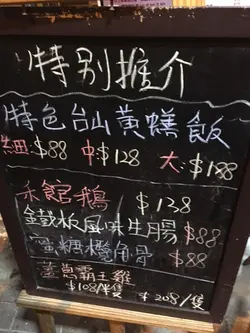 特别推介
特色台山黃蟮飯
細:$88 中:$128 大:$188
禾館鵝 $138
鐵板風味生腸 $88
蜜糖欖角骨 $88
薑蔥霸王雞
$108/半隻 $208/隻